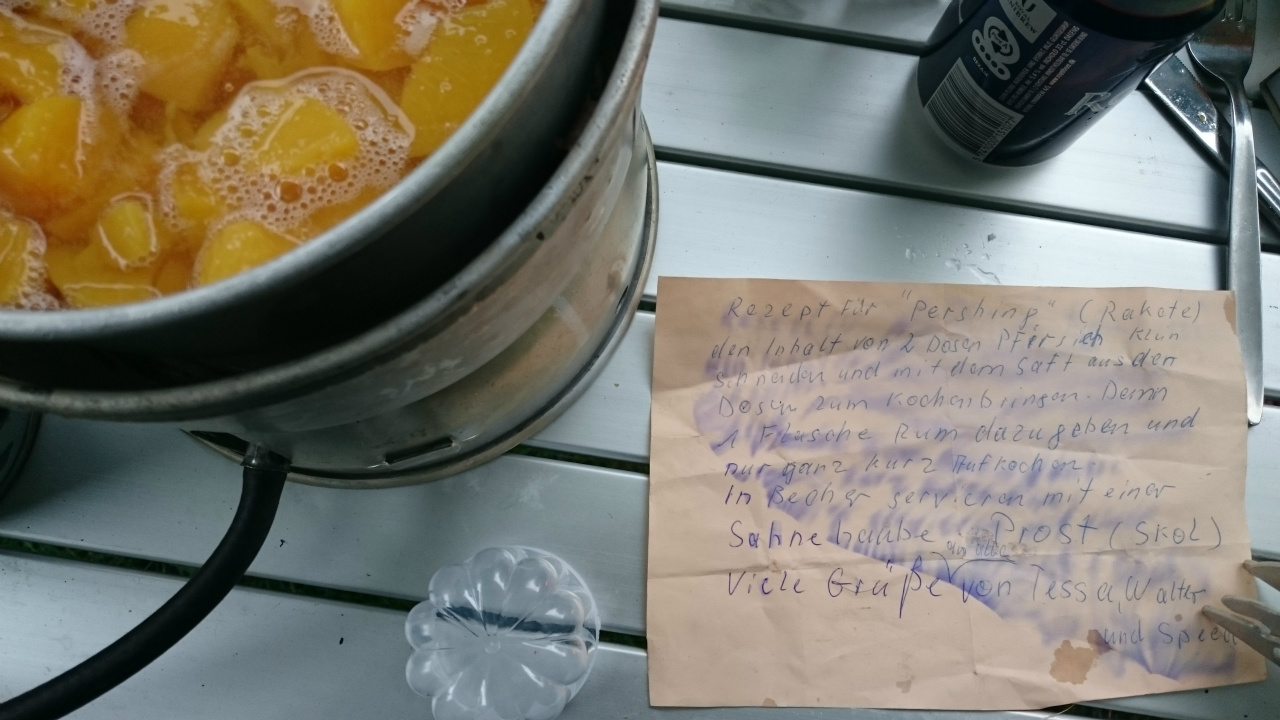 Rezept für "Pershing" (Rakete)
den Inhalt von 2 Dosen Pfirsich klein
schneiden und mit dem Saft aus den
Dosen zum Kochen bringen. Dann
1 Flasche Rum dazugeben und
nur ganz kurz Aufkochen
In Becher servieren mit einer
Sahnehaube Prost (Skol)
an alle
Viele Grüße von Tessa, Walter
und Speed